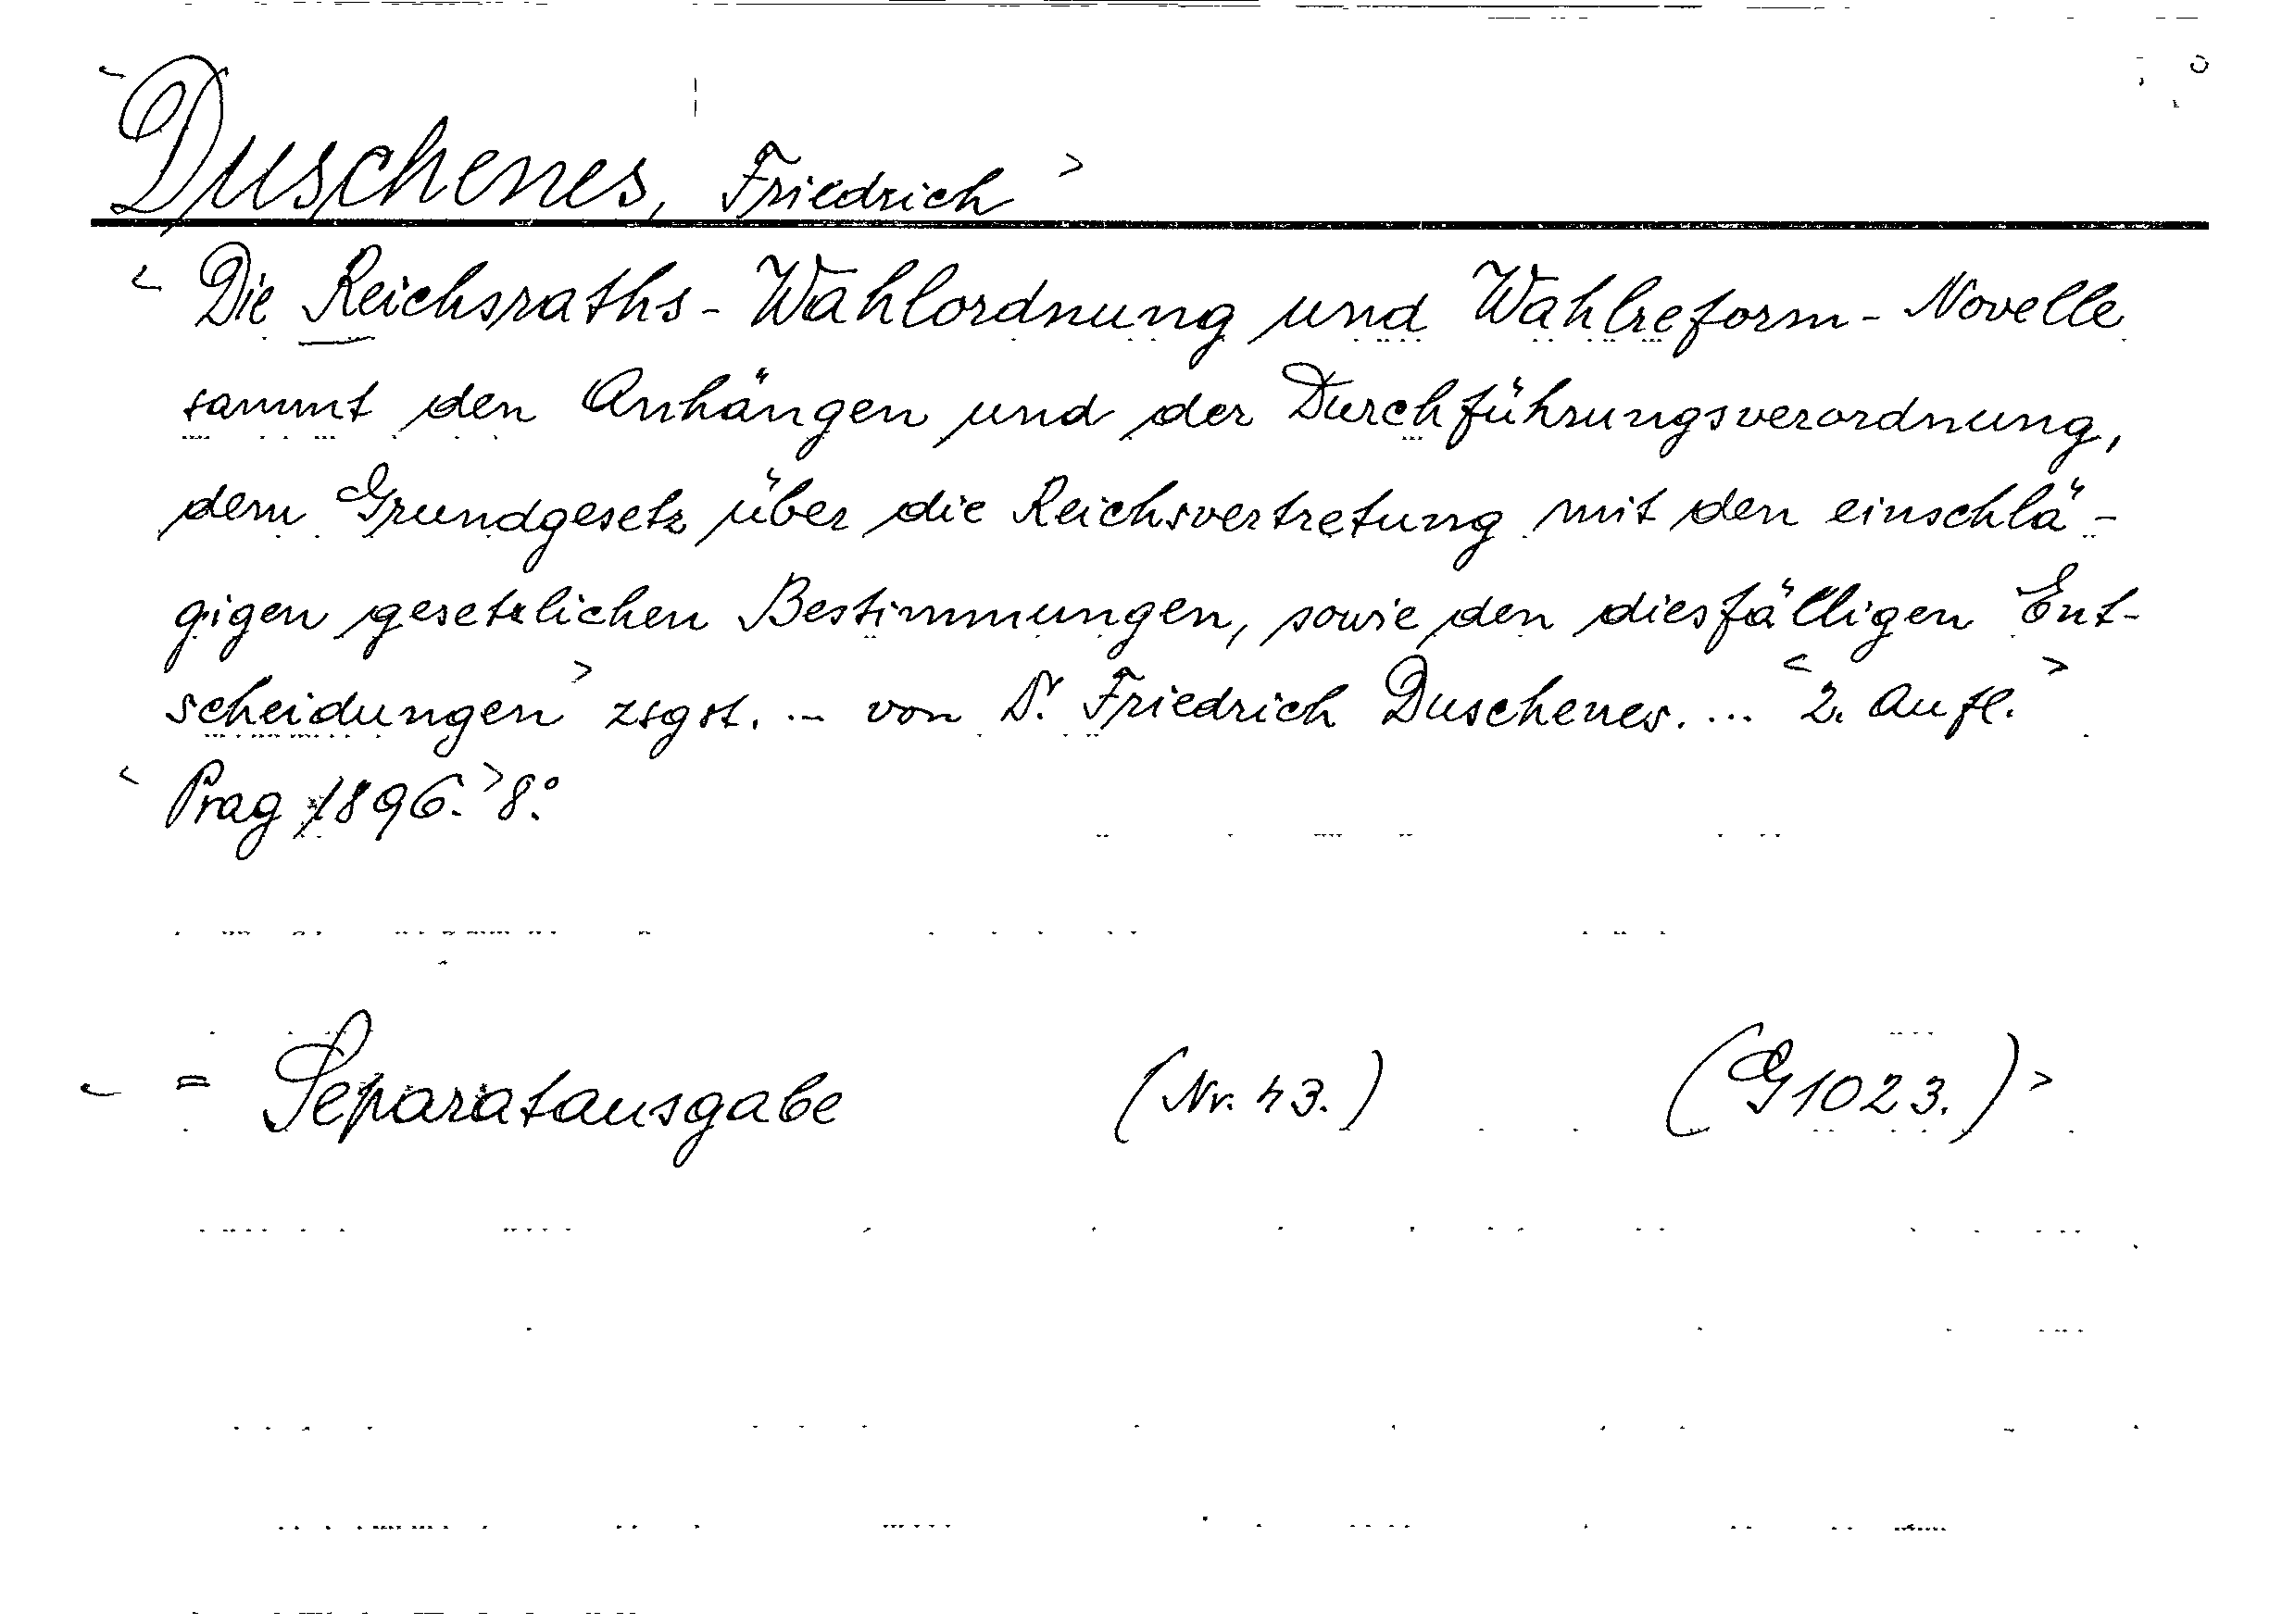 < Duschenes, Friedrich >
< Die Reichsraths-Wahlordnung und Wahlreform-Novelle
sammt den Anhängen und der Durchführungsverordnung,
dem Grundgesetz über die Reichsvertretung mit den einschlä-
gigen gesetzlichen Bestimmungen, sowie den diesfälligen Ent-
scheidungen > zsgst. ... von Dr. Friedrich Duschenes. ... < 2. Aufl. >
< Prag 1896. > 8°.
< = Separatausgabe (Nr. 43.) (G1023.) >